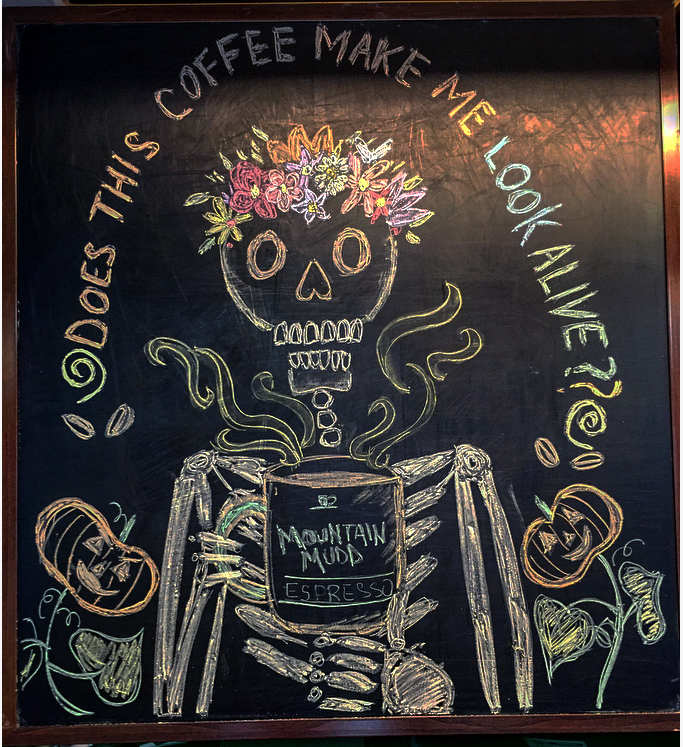 DOES THIS COFFEE MAKE ME LOOK ALIVE??
MOUNTAIN
MUDD
ESPRESSO